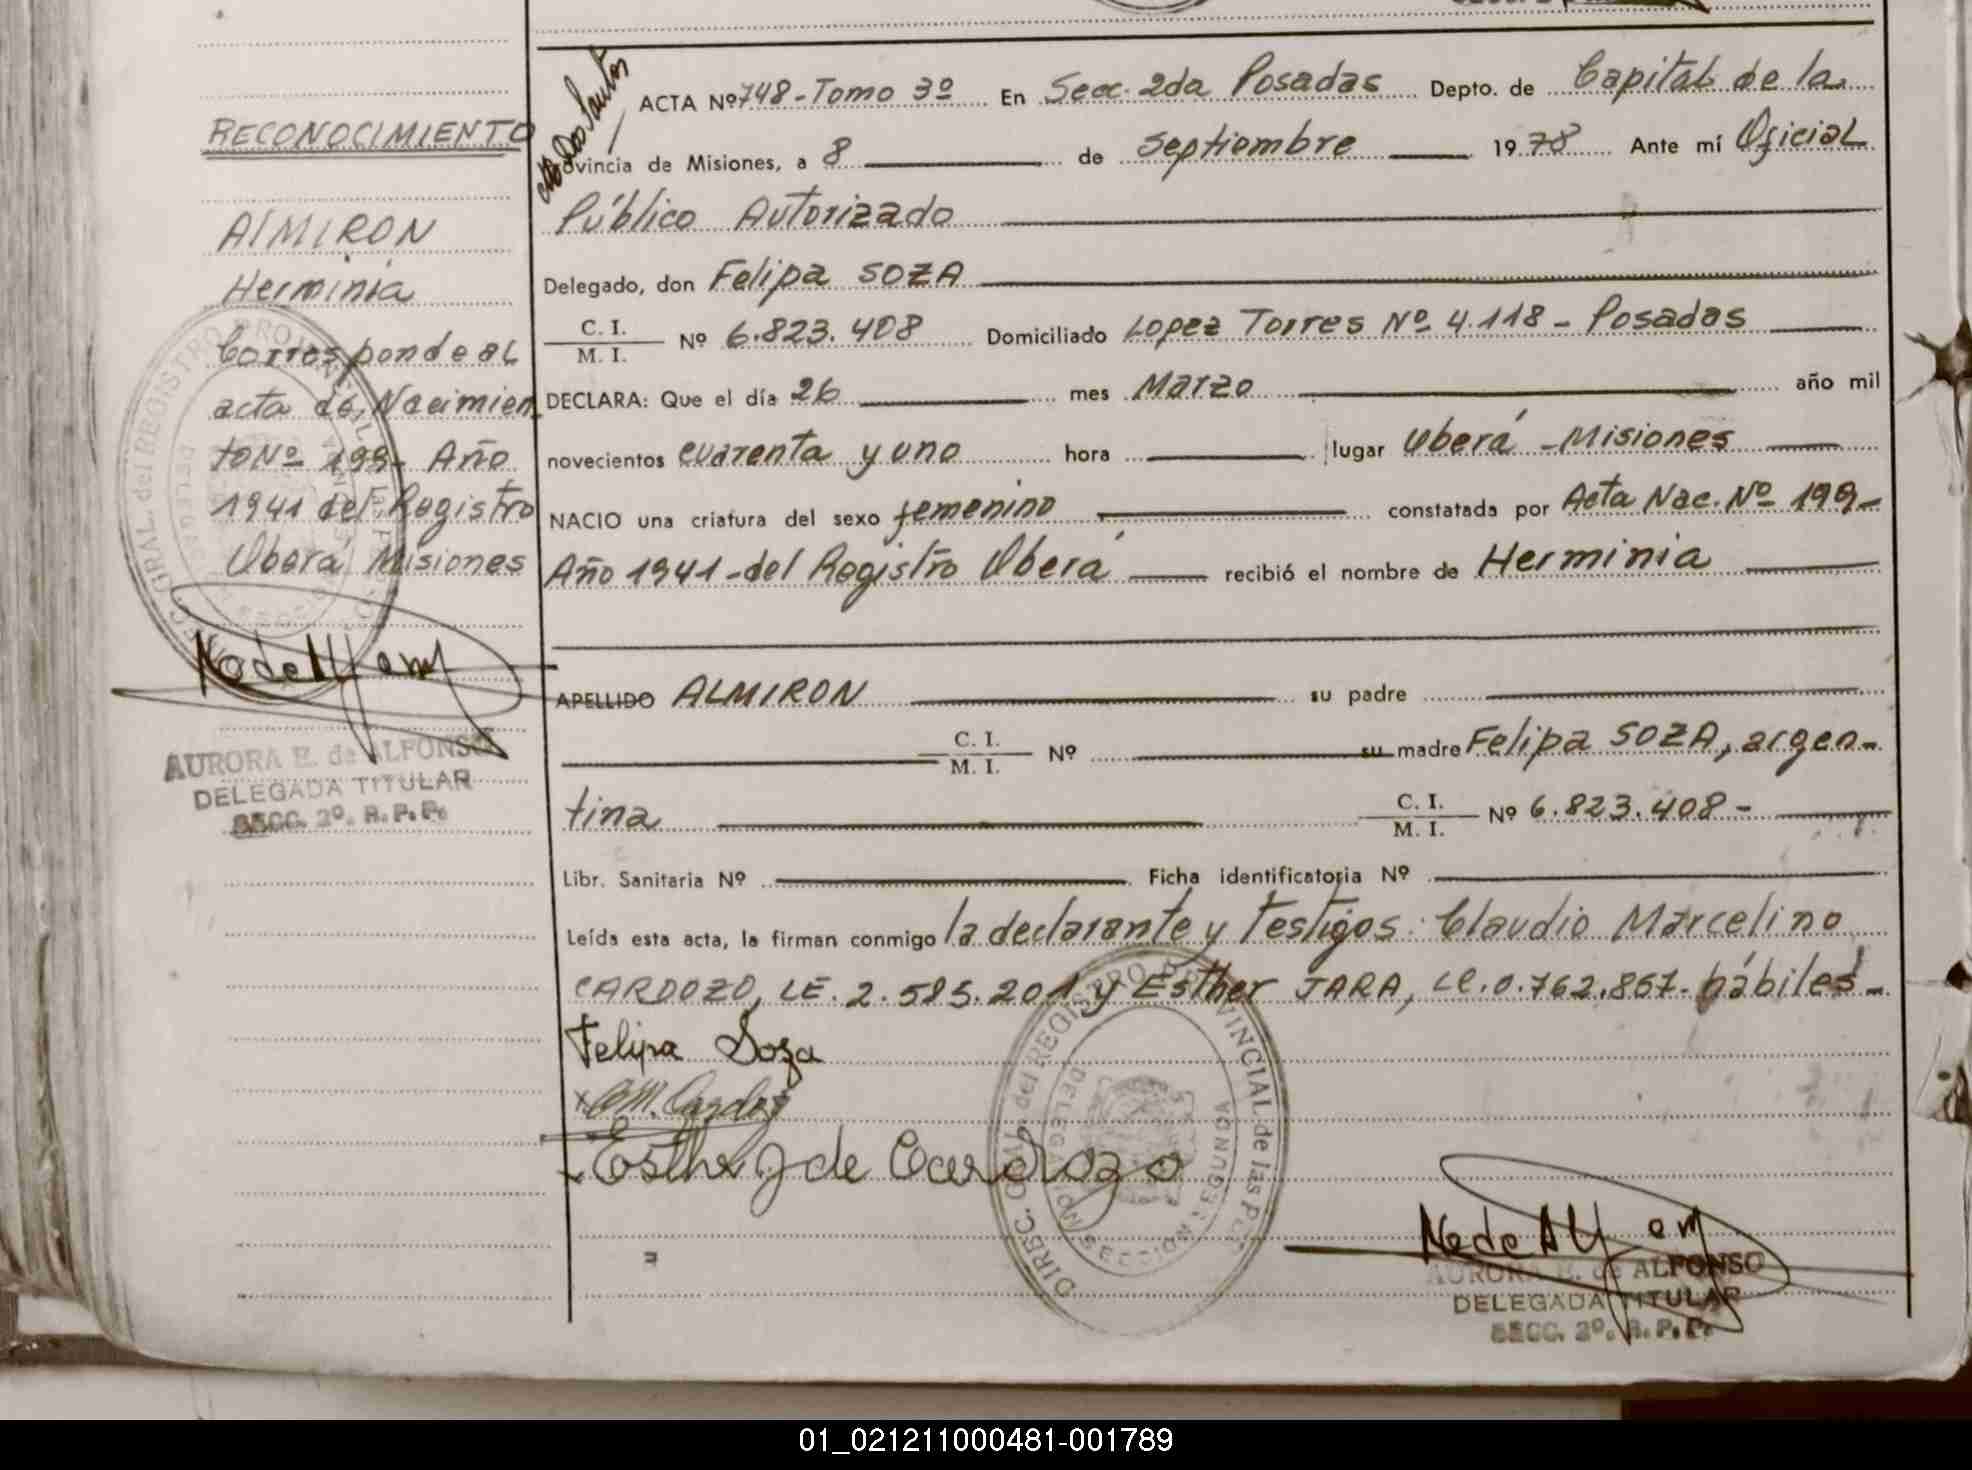 RECONOCIMIENTO
AlMIRON
Herminia
Corresponde al
acta de Nacimien
to Nº 199- Año
1941 del Registro
Oberá Misiones
AURORA E. de ALFONSO
DELEGADA TITULAR
SECC. 2º. R.P.P.
ACTA Nº 748-Tomo 3º En Secc. 2da Posadas Depto. de Capital de la
ovincia de Misiones, a 8 de Septiembre 1978 Ante mí Oficial
Público Autorizado
Delegado, don Felipa SOZA
C. I.
M. I. Nº 6.823.408 Domiciliado Lopez Torres Nº 4.118 - Posadas
DECLARA: Que el día 26 mes Marzo año mil
novecientos cuarenta y uno hora lugar Oberá - Misiones
NACIO una criatura del sexo femenino constatada por Acta Nac. Nº 199-
Año 1941-del Registro Oberá recibió el nombre de Herminia
APELLIDO ALMIRON su padre
C. I.
M. I. Nº su madre Felipa SOZA, argen-
tina C. I.
M. I. Nº 6.823.408-
Libr. Sanitaria Nº Ficha identificatoria Nº
Leída esta acta, la firman conmigo la declarante y Testigos: Claudio Marcelino
CARDOZO, LE. 2.585.201 y Esther JARA, LC. 0.762.867. hábiles-
Felipa Soza
Esther J de Cardozo
DIREC. GRAL. del REGISTRO PROVINCIAL de las P
DELEGACION SECCION SEGUNDA
AURORA E. de ALFONSO
DELEGADA TITULAR
SECC. 2º. R.P.P.
01_021211000481-001789